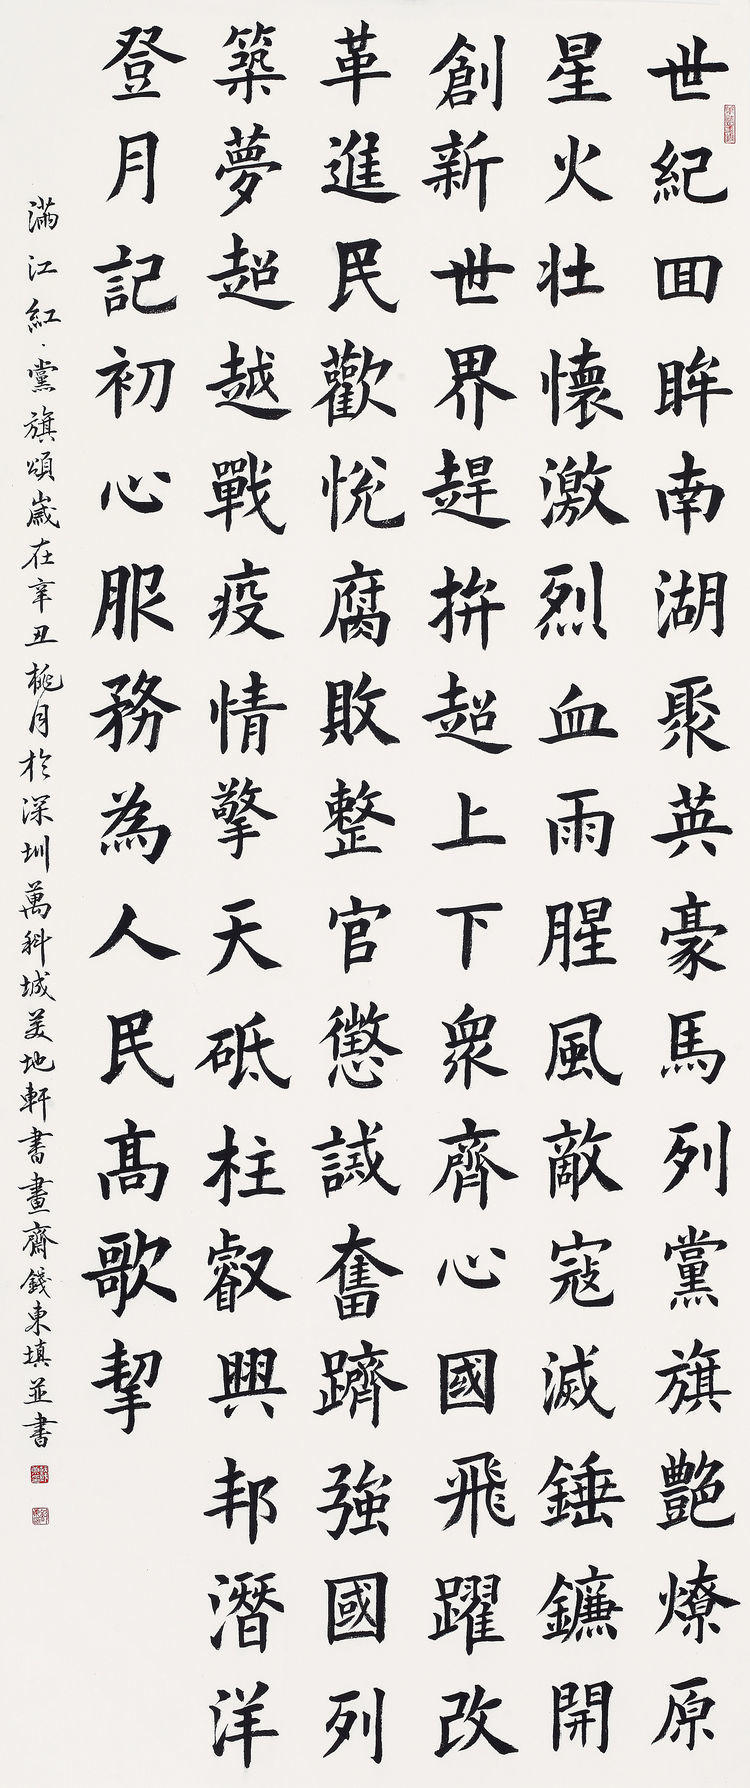 世紀回眸南湖聚英豪馬列黨旗艷燎原
星火壯懷激烈血雨腥風敵寇滅錘鐮開
創新世界趕拚超上下衆齊心國飛躍改
革進民歡悅腐敗整官懲誡奮躋強國列
築夢超越戰疫情擎天砥柱叡興邦潛洋
登月記初心服務為人民高歌挈
滿江紅·黨旗頌歲在辛丑桃月於深圳萬科城美地軒書畫齋錢東填並書